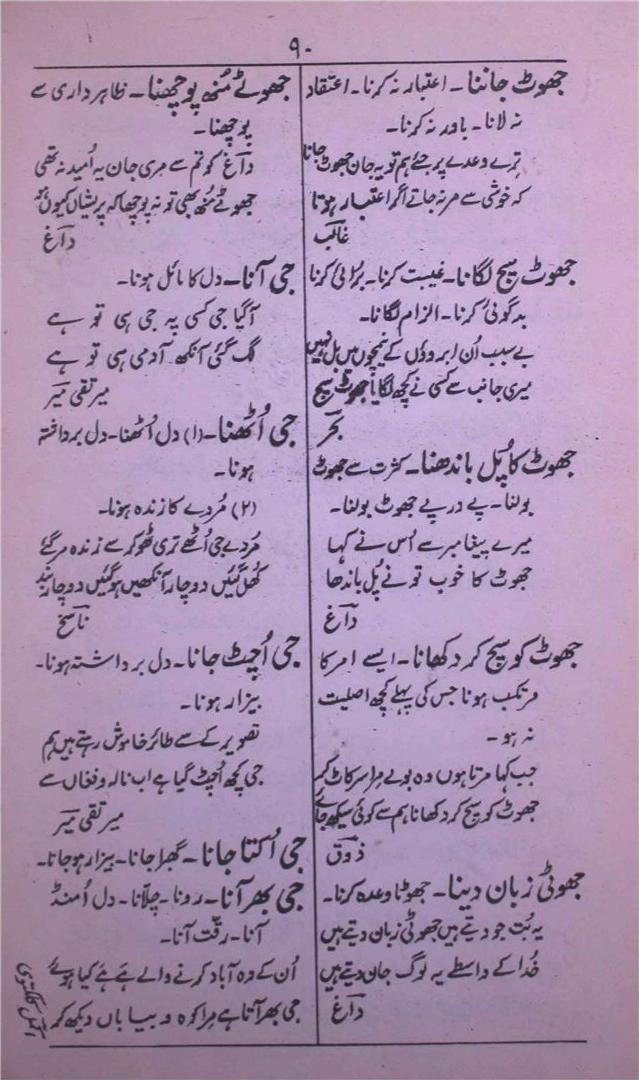 ۹۰
جھوٹ جاننا۔ اعتبار نہ کرنا۔ اعتقاد
نہ لانا۔ باور نہ کرنا۔
ترے وعدے پر جئے ہم تو یہ جان جھوٹ جانا
کہ خوشی سے مر نہ جاتے اگر اعتبار ہوتا
غالب
جھوٹ سچ لگانا۔ غیبت کرنا۔ برائی کرنا
بدگوئی کرنا۔ الزام لگانا۔
بے سبب اُن ابروؤں کے نیچوں میں بل نہیں
میری جانب سے کسی نے کچھ لگایا جھوٹ سچ
بحر
جھوٹ کا پُل باندھنا۔ کثرت سے جھوٹ
بولنا۔ پے درپے جھوٹ بولنا۔
میرے پیغامبر سے اُس نے کہا
جھوٹ کا خوب تو نے پُل باندھا
داغ
جھوٹ کو سچ کر دکھانا۔ ایسے امر کا
مرتکب ہونا جس کی پہلے کچھ اصلیت
نہ ہو۔
جب کہا مرتا ہوں وہ بولے مرا سر کاٹ کر
جھوٹ کو سچ کر دکھانا ہم سے کوئی سیکھ جائے
ذوق
جھوٹی زبان دینا۔ جھوٹا وعدہ کرنا۔
یہ بُت جو دیتے ہیں جھوٹی زبان دیتے ہیں
خُدا کے واسطے یہ لوگ جان دیتے ہیں
داغ
جھوٹے مُنھ پوچھنا۔ ظاہرداری سے
پوچھنا۔
داغ کو تم سے مری جان یہ اُمید نہ تھی
جھوٹے مُنھ بھی تو نہ پوچھا کہ پریشاں کیوں ہو
داغ
جی آنا۔ دل کا مائل ہونا۔
آگیا جی کسی پہ جی ہی تو ہے
لگ گئی آنکھ آدمی ہی تو ہے
میر تقی میر
جی اُٹھنا۔ (۱) دل اُٹھنا۔ دل برداشتہ
ہونا۔
(۲) مُردے کا زندہ ہونا۔
مُردے جی اُٹھے تری ٹھوکر سے زندہ مرگئے
کھل گئیں دو چار آنکھیں ہوگئیں دو چار بند
ناسخ
جی اُچٹ جانا۔ دل برداشتہ ہونا۔
بیزار ہونا۔
تصویر کے سے طائر خاموش رہتے ہیں ہم
جی کچھ اُچٹ گیا ہے اب نالہ و فغاں سے
میر تقی میر
جی اُکتا جانا۔ گھبرا جانا۔ بیزار ہو جانا۔
جی بھر آنا۔ رونا۔ چلّانا۔ دل اُمنڈ
آنا۔ رقّت آنا۔
اُن کے وہ آباد کرنے والے ہے ہے کیا ہوئے
جی بھر آتا ہے مرا کوہ و بیاباں دیکھ کر